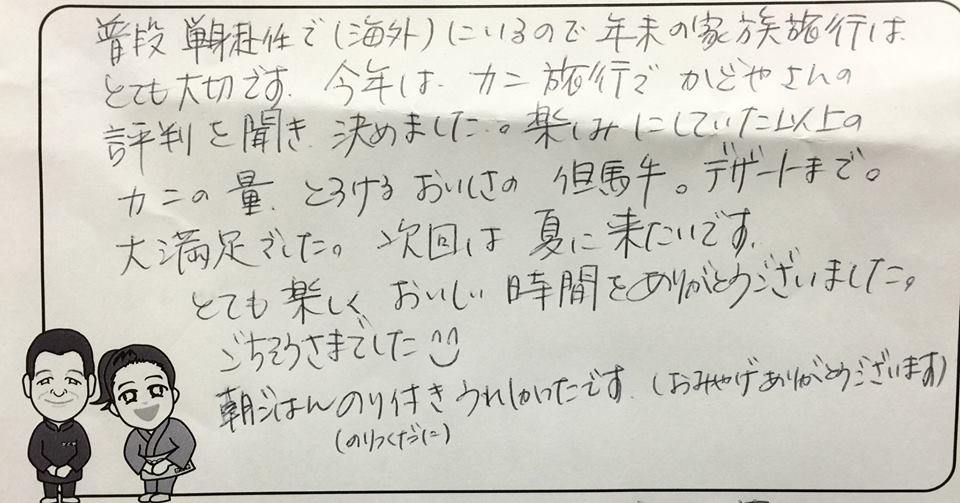 普段 単身赴任で(海外)にいるので年末の家族旅行は
とても大切です。今年は、カニ旅行で かどやさんの
評判を聞き、決めました。楽しみにしていた以上の
カニの量、とろけるおいしさの 但馬牛。デザートまで。
大満足でした。次回は 夏に来たいです。
とても楽しく おいしい 時間をありがとうございました。
ごちそうさまでした
朝ごはんのり付きうれしかったです。(おみやげありがとうございます)
(のりつくだに)